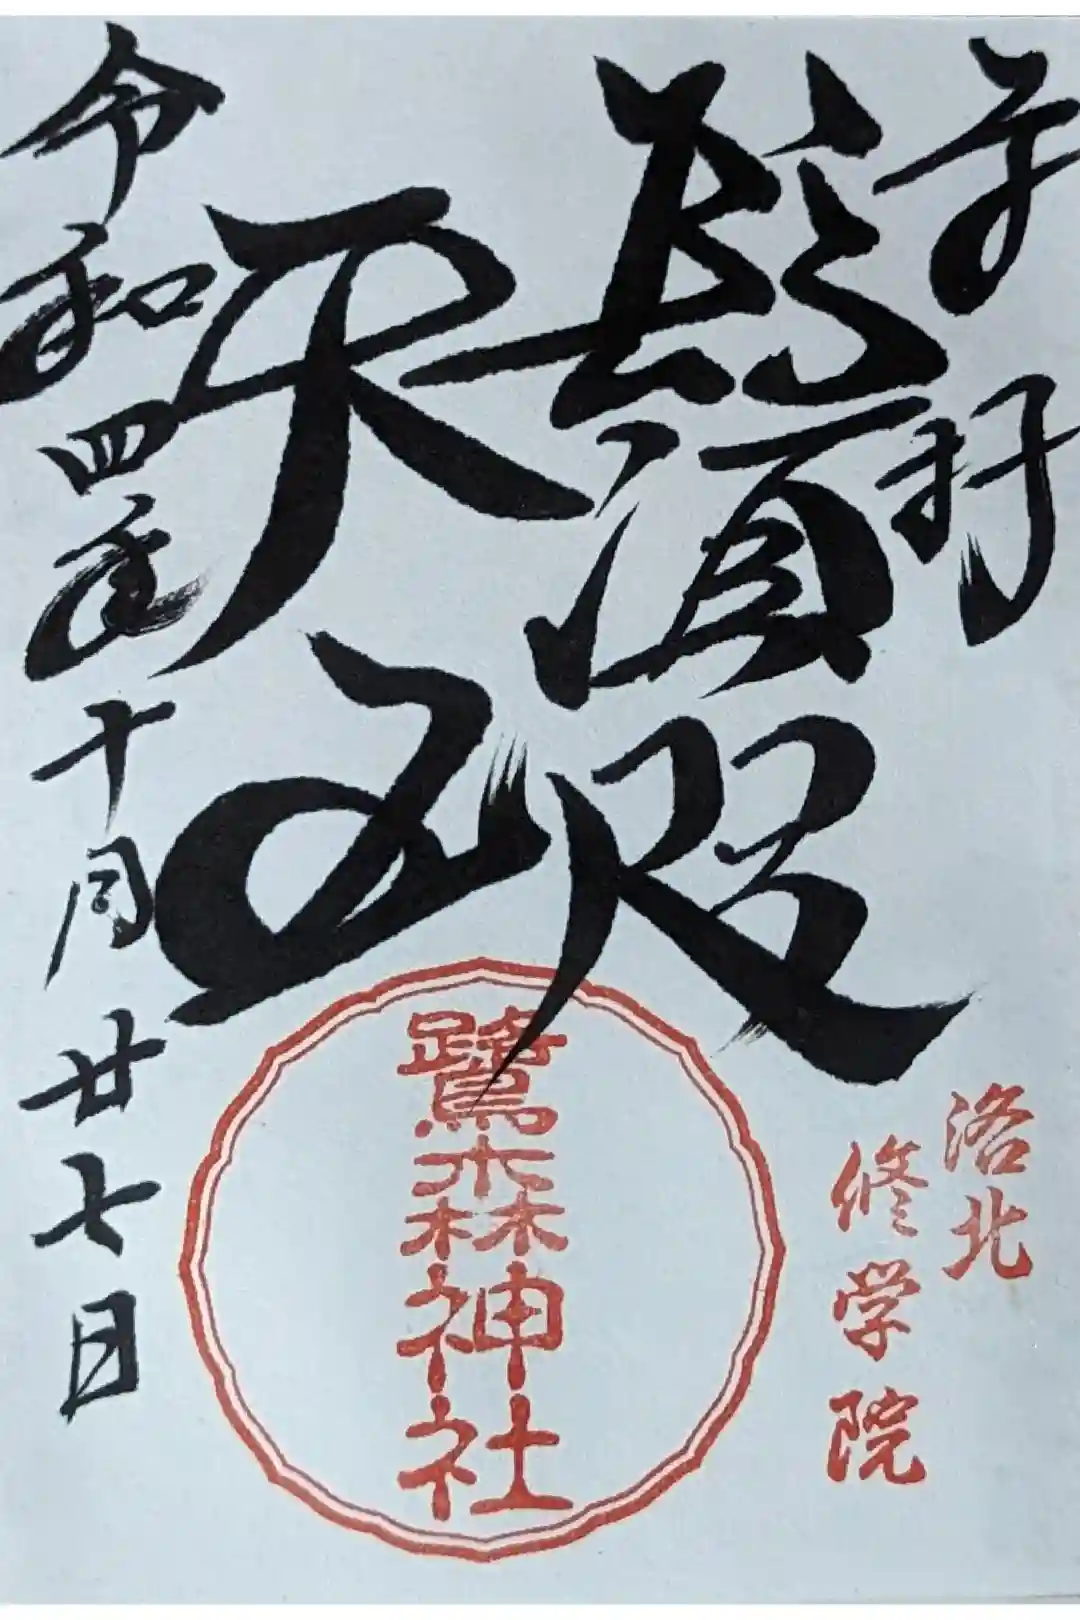 奉拝
鬚咫
天王
令和四年十月廿七日
洛北
修学院
鷺森神社